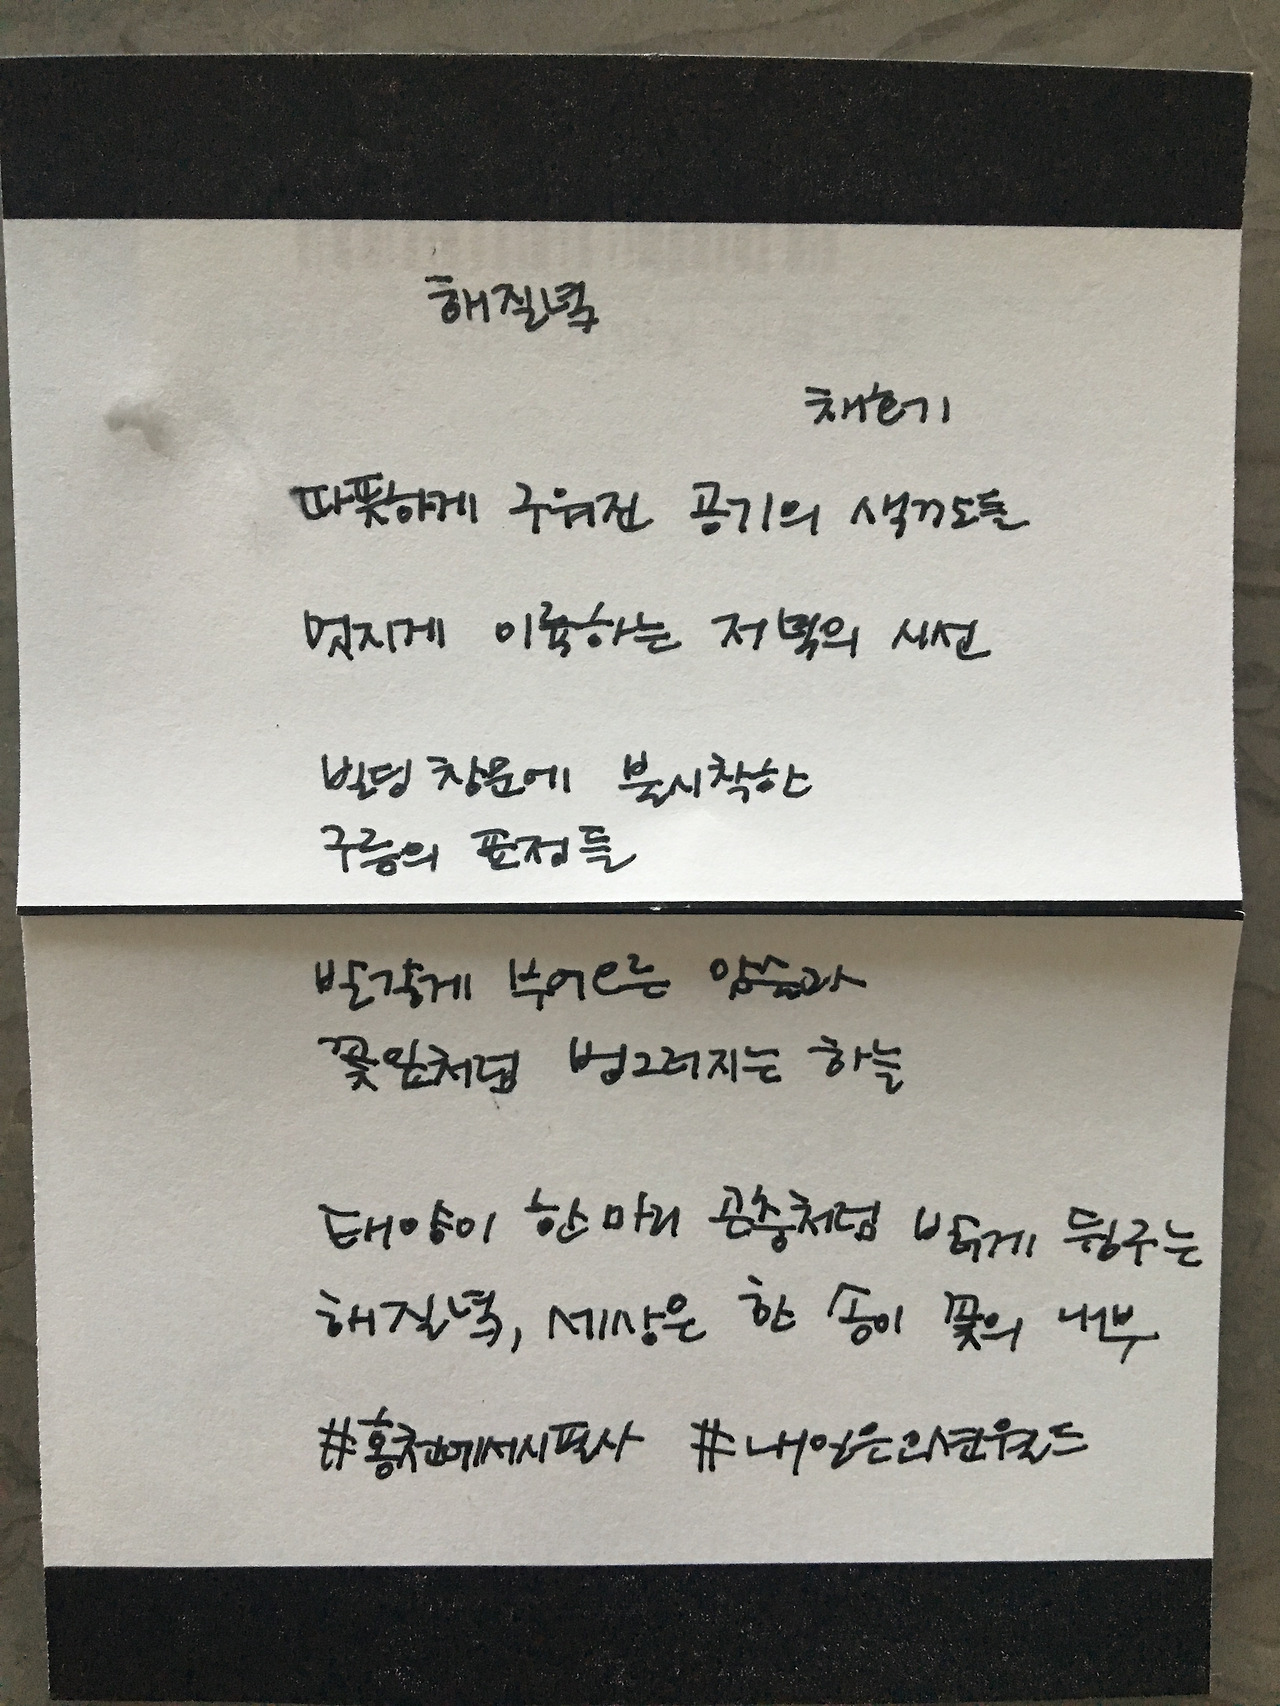 해질녘
채호기
따뜻하게 구워진 공기의 색깔들
멋지게 이륙하는 저녁의 시선
빌딩 창문에 불시착한
구름의 표정들
발갛게 부어오른 암술과
꽃잎처럼 벙그러지는 하늘
태양이 한 마리 곤충처럼 밝게 뒹구는
해질녘, 세상은 한 송이 꽃의 내부
#홍천에서시필사